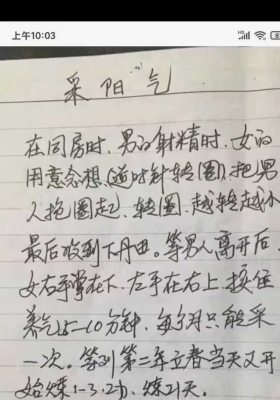 上午10:03
采阳气
在同房时,男的射精时,女的
用意念想,(逆时针转圈),把男
人抱圈起),转圈,越转越小
最后收到下丹田。等男人离开后,
女右手掌在下,左手在右上,接住
养气15-10分钟,每个月只能采
一次。等到第二年立春当天又开
始炼1-3.2力,炼21天。